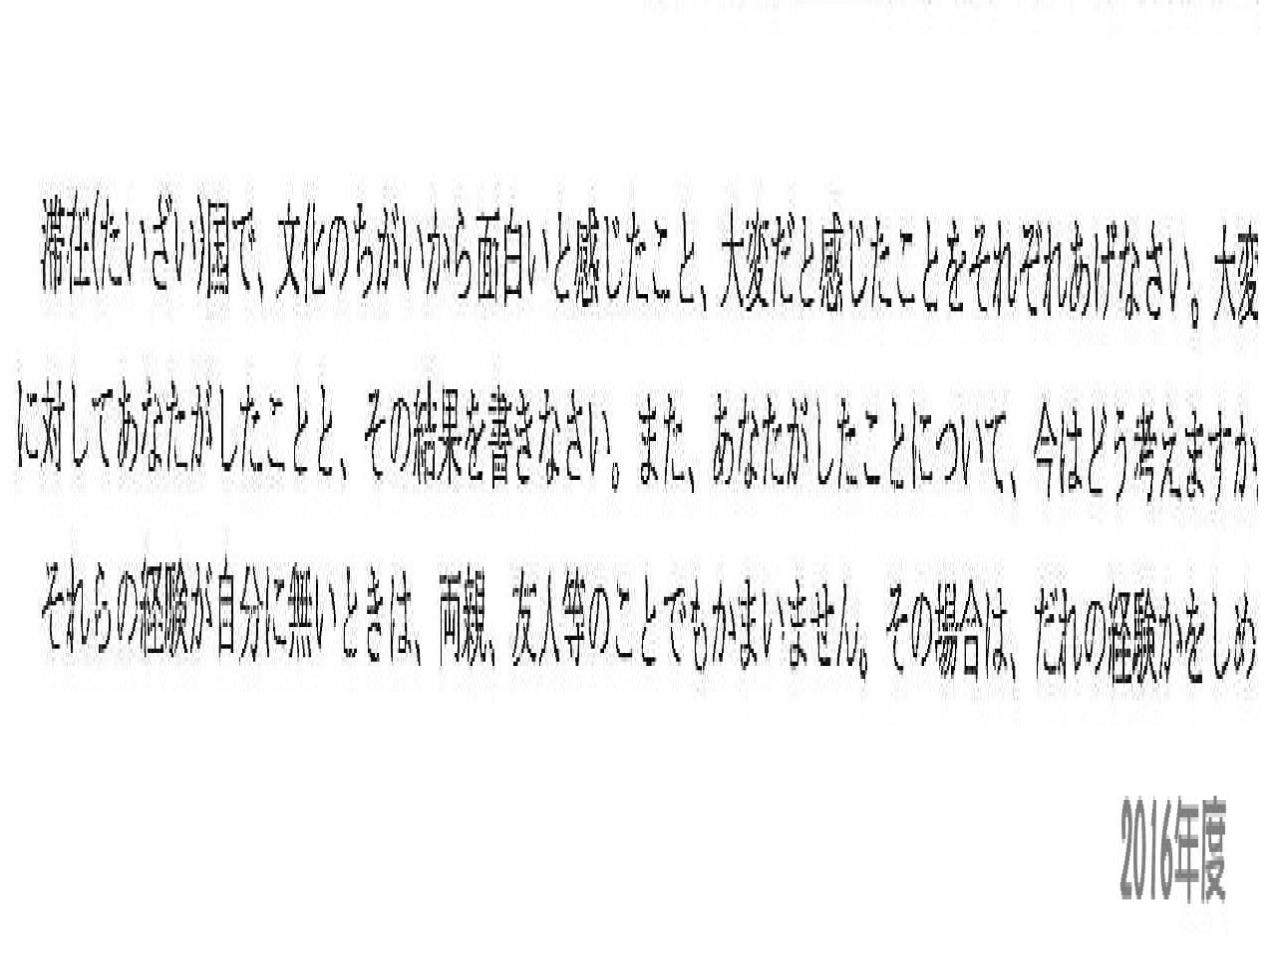 滞在(たいざい)国で、文化のちがいから面白いと感じたこと、大変だと感じたことをそれぞれあげなさい。大変
に対してあなたがしたことと、その結果を書きなさい。また、あなたがしたことについて、今はどう考えますか
それらの経験が自分に無いときは、両親、友人等のことでもかまいません。その場合は、だれの経験かをしめ
2016年度